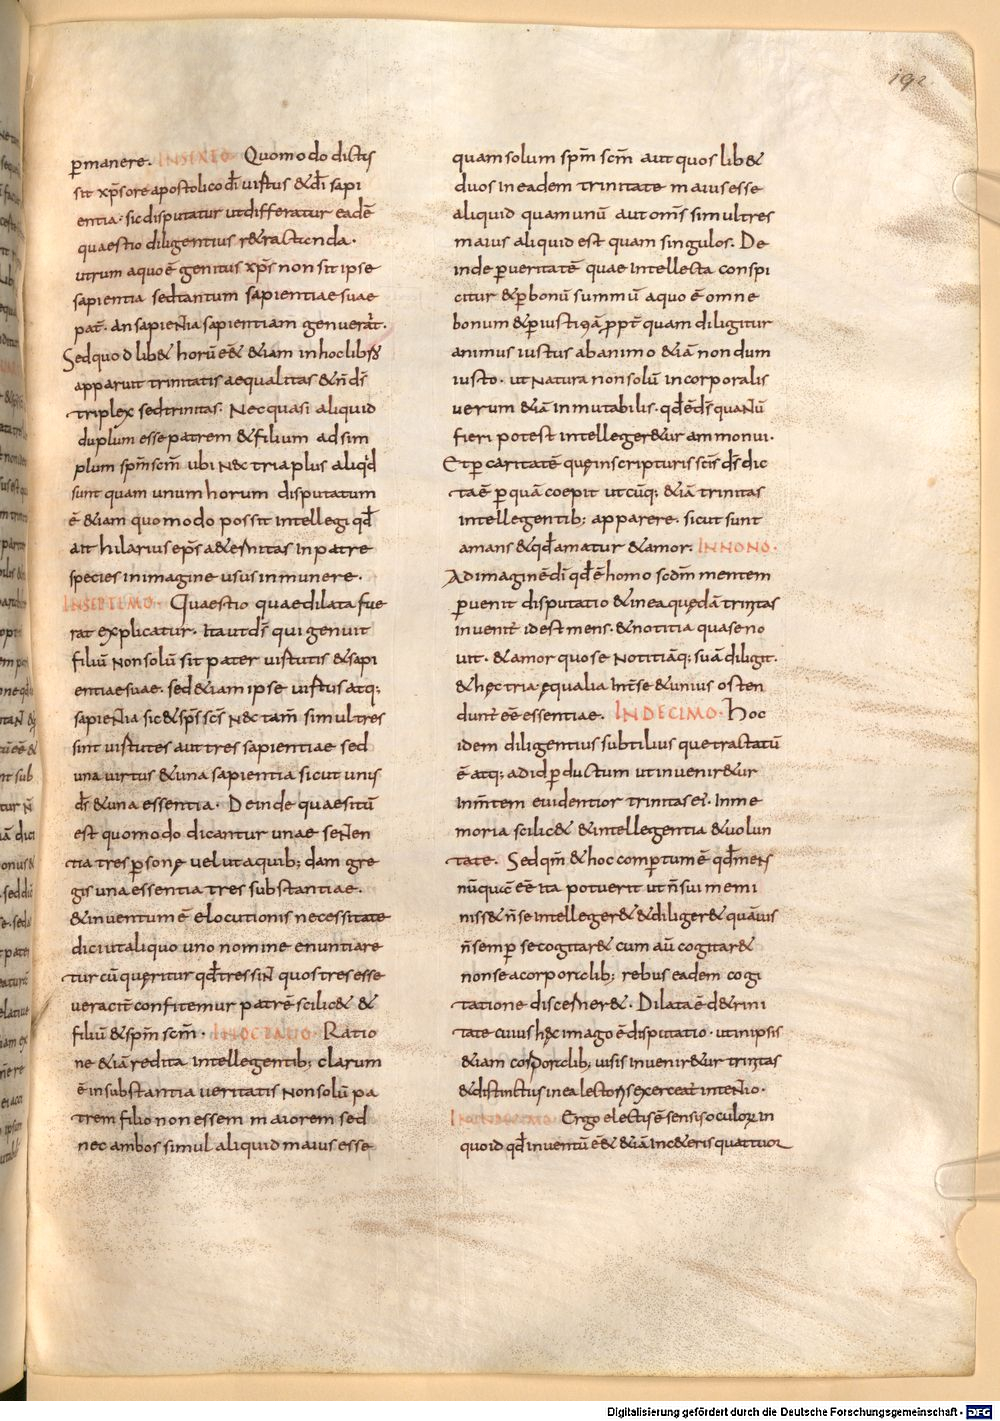 192
p̄manere. IN SEXTO. Quomodo dictis
sit xp̄s ore apostolico d̄i uirtus & d̄i sapi
entia. sic disputatur ut differatur eadē
quaestio diligentius r&ractanda.
utrum a quo ē genitus xp̄s non sit ipse
sapientia sed tantum sapientiae suae
pat̄. an sapientia sapientiam genuerit.
Sed quodlib& horū eēt &iam in hoc libro
apparuit trinitatis aequalitas & n̄ d̄s
triplex sed trinitas. Nec quasi aliquid
duplum esse patrem & filium ad sim
plum sp̄m sc̄m ubi nec tria plus aliqd
sunt quam unum horum disputatum
ē &iam quomodo possit intellegi qd̄
ait hilarius ep̄s a&ernitas in patre
species in imagine usus in munere.
IN SEPTIMO. Quaestio quae dilata fue
rat explicatur. Ita ut d̄s qui genuit
filiū non solū sit pater uirtutis & sapi
entiae suae. sed &iam ipse uirtus atq;
sapientia sic & sp̄s sc̄s nec tam̄ simul tres
sint uirtutes aut tres sapientiae sed
una uirtus & una sapientia sicut unus
d̄s & una essentia. Deinde quaesitū
est quomodo dicantur unae senten
tia tres p̄sonę uel ut a quib; dam gre
gis una essentia tres substantiae.
& inuentum ē elocutionis necessitate
dici ut aliquo uno nomine enuntiare
tur cū quęritur qd̄ tres sint quos tres esse
ueracit̄ confitemur patrē scilic& &
filiū & sp̄m sc̄m. IN OCTAVO. Ratio
ne &iā reddita intellegentib; clarum
ē in substantia ueritatis non solū pa
trem filio non essem maiorem sed
nec ambos simul aliquid maius esse
quam solum sp̄m sc̄m aut quoslib&
duos in eadem trinitate maius esse
aliquid quam unū aut om̄s simul tres
maius aliquid est quam singulos. De
inde p̄ ueritatē quae intellecta conspi
citur & p̄ bonū summū a quo ē omne
bonum & p̄ iustitiā ppt̄ quam diligitur
animus iustus ab animo &iā nondum
iusto. ut natura non solū incorporalis
uerum &iā inmutabilis. qd̄ ē d̄s quantū
fieri potest intelleger&ur ammonui.
Et p̄ caritatē quę in scripturis sc̄is d̄s dic
ta ē p̄ quā coepit utcūq; &iā trinitas
intellegentib; apparere. sicut sunt
amans & qd̄ amatur & amor. IN NONO.
Ad imaginē d̄i qd̄ ē homo scd̄m mentem
p̄uenit disputatio & in ea quędā trinitas
inuenit̄ id est mens. & notitia qua se no
uit. & amor quo se notitiāq; suā diligit.
& hęc tria equalia int̄ se & unius osten
dunt̄ eē essentiae. IN DECIMO. Hoc
idem diligentius subtiliusque tractatū
ē atq; ad id p̄ductum ut inuenir&ur
in m̄tem euidentior trinitas ei. In me
moria scilic& & intellegentia & uolun
tate. Sed qm̄ & hoc comp̄tum ē qd̄ mens
nūquā eē ita potuerit ut n̄ sui memi
niss& n̄ se intelleger& & diliger& quāuis
n̄ semp̄ se cogitar& cum aū cogitar&
non se a corporalib; rebus eadem cogi
tatione discerner&. Dilata ē de trini
tate cuius hęc imago ē disputatio. ut in ipsis
&iam corporalib; uisis inuenir&ur trinitas
& distinctius in ea lectoris exerceat̄ intentio.
IN UNDECIMO Ergo electi s̄ sensus oculorum in
quo id qd̄ inuentū eēt &iā in ceteris quattuor
Digitalisierung gefördert durch die Deutsche Forschungsgemeinschaft - DFG